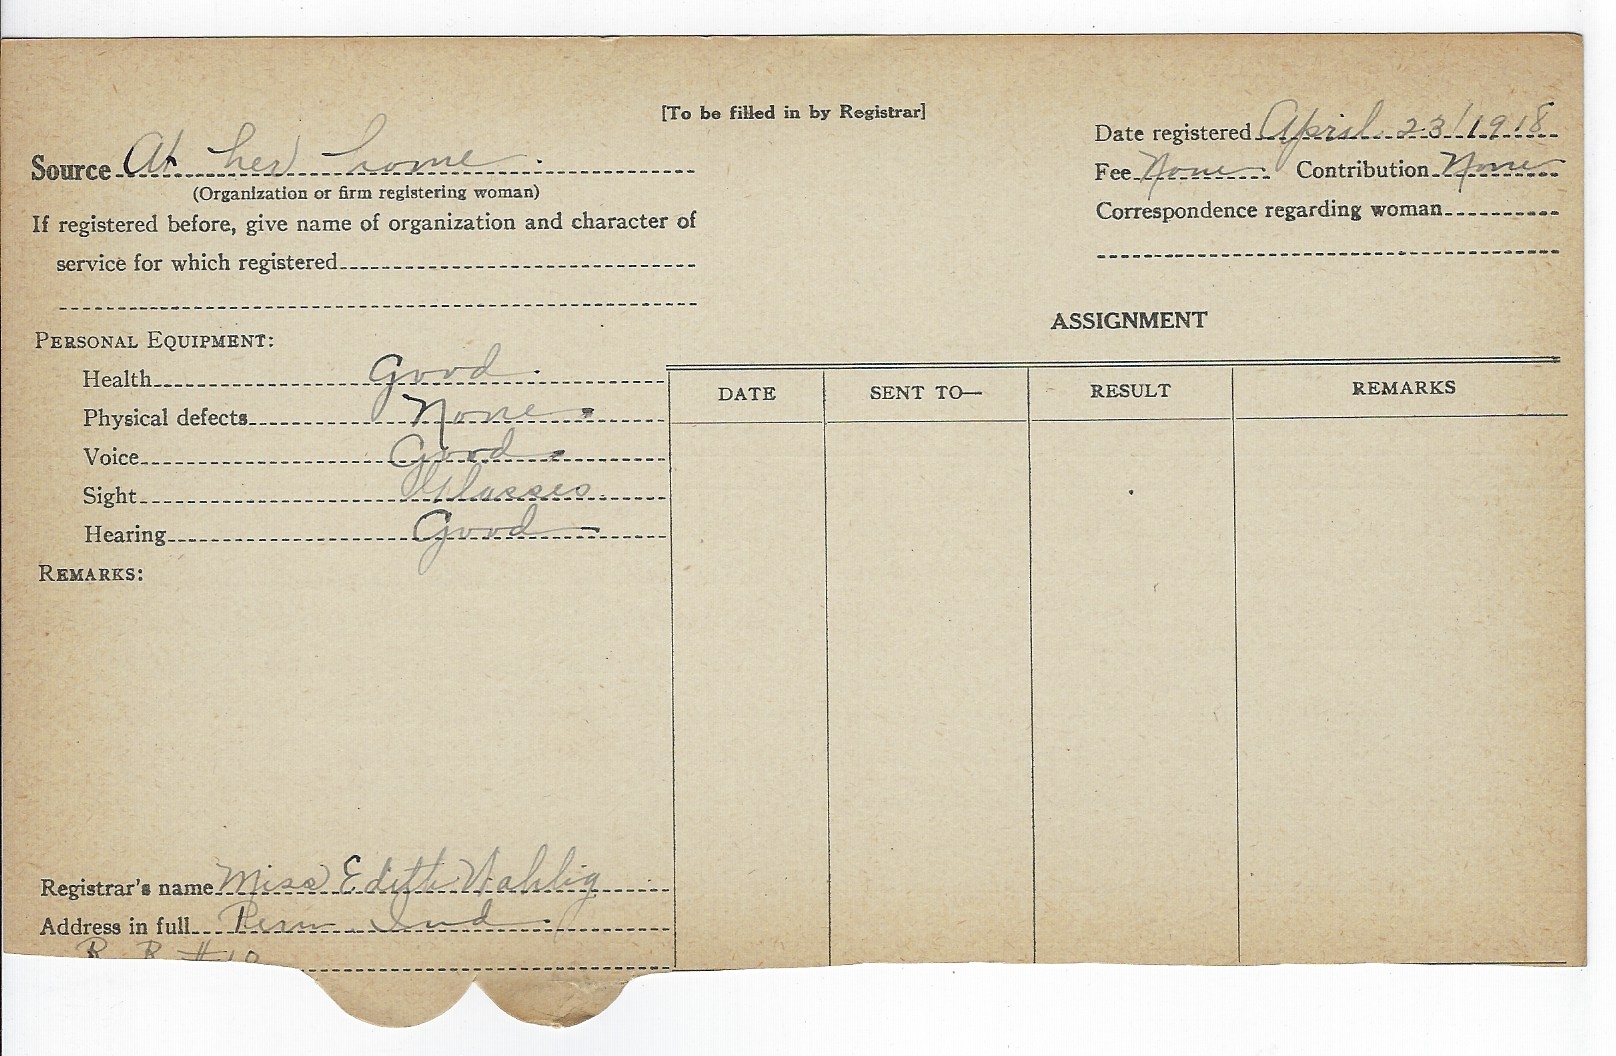 [To be filled in by Registrar]
Date registered April 23/1918
Source At her home.
Fee None. Contribution None
(Organization or firm registering woman)
Correspondence regarding woman
If registered before, give name of organization and character of
service for which registered
ASSIGNMENT
PERSONAL EQUIPMENT:
Health Good.
Physical defects None.
Voice Good.
Sight Glasses.
Hearing Good
DATE SENT TO— RESULT REMARKS
REMARKS:
Registrar's name Miss Edith Wahlig
Address in full Peru Ind.
R. R. #10